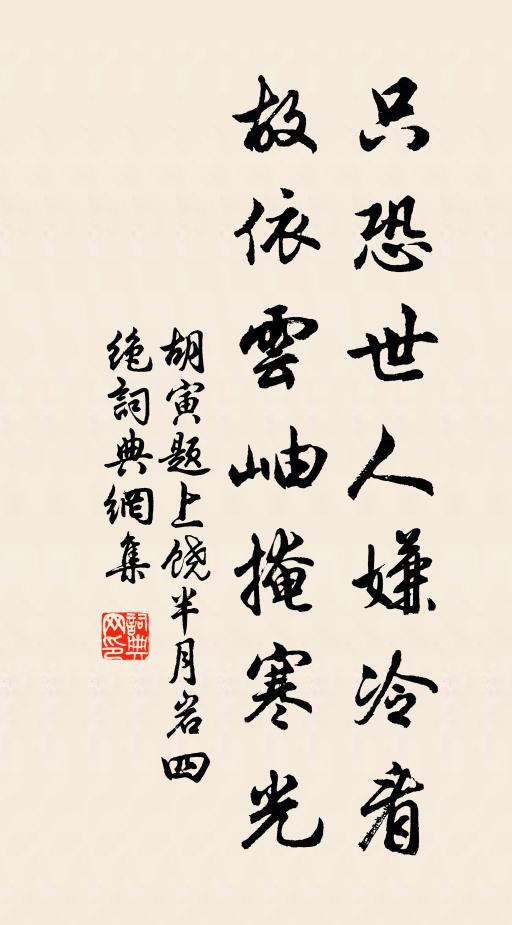 只恐世人嫌冷看
故依雲岫掩寒光
胡寅题上饶半月岩四
绝詞典網集
詞典
网印